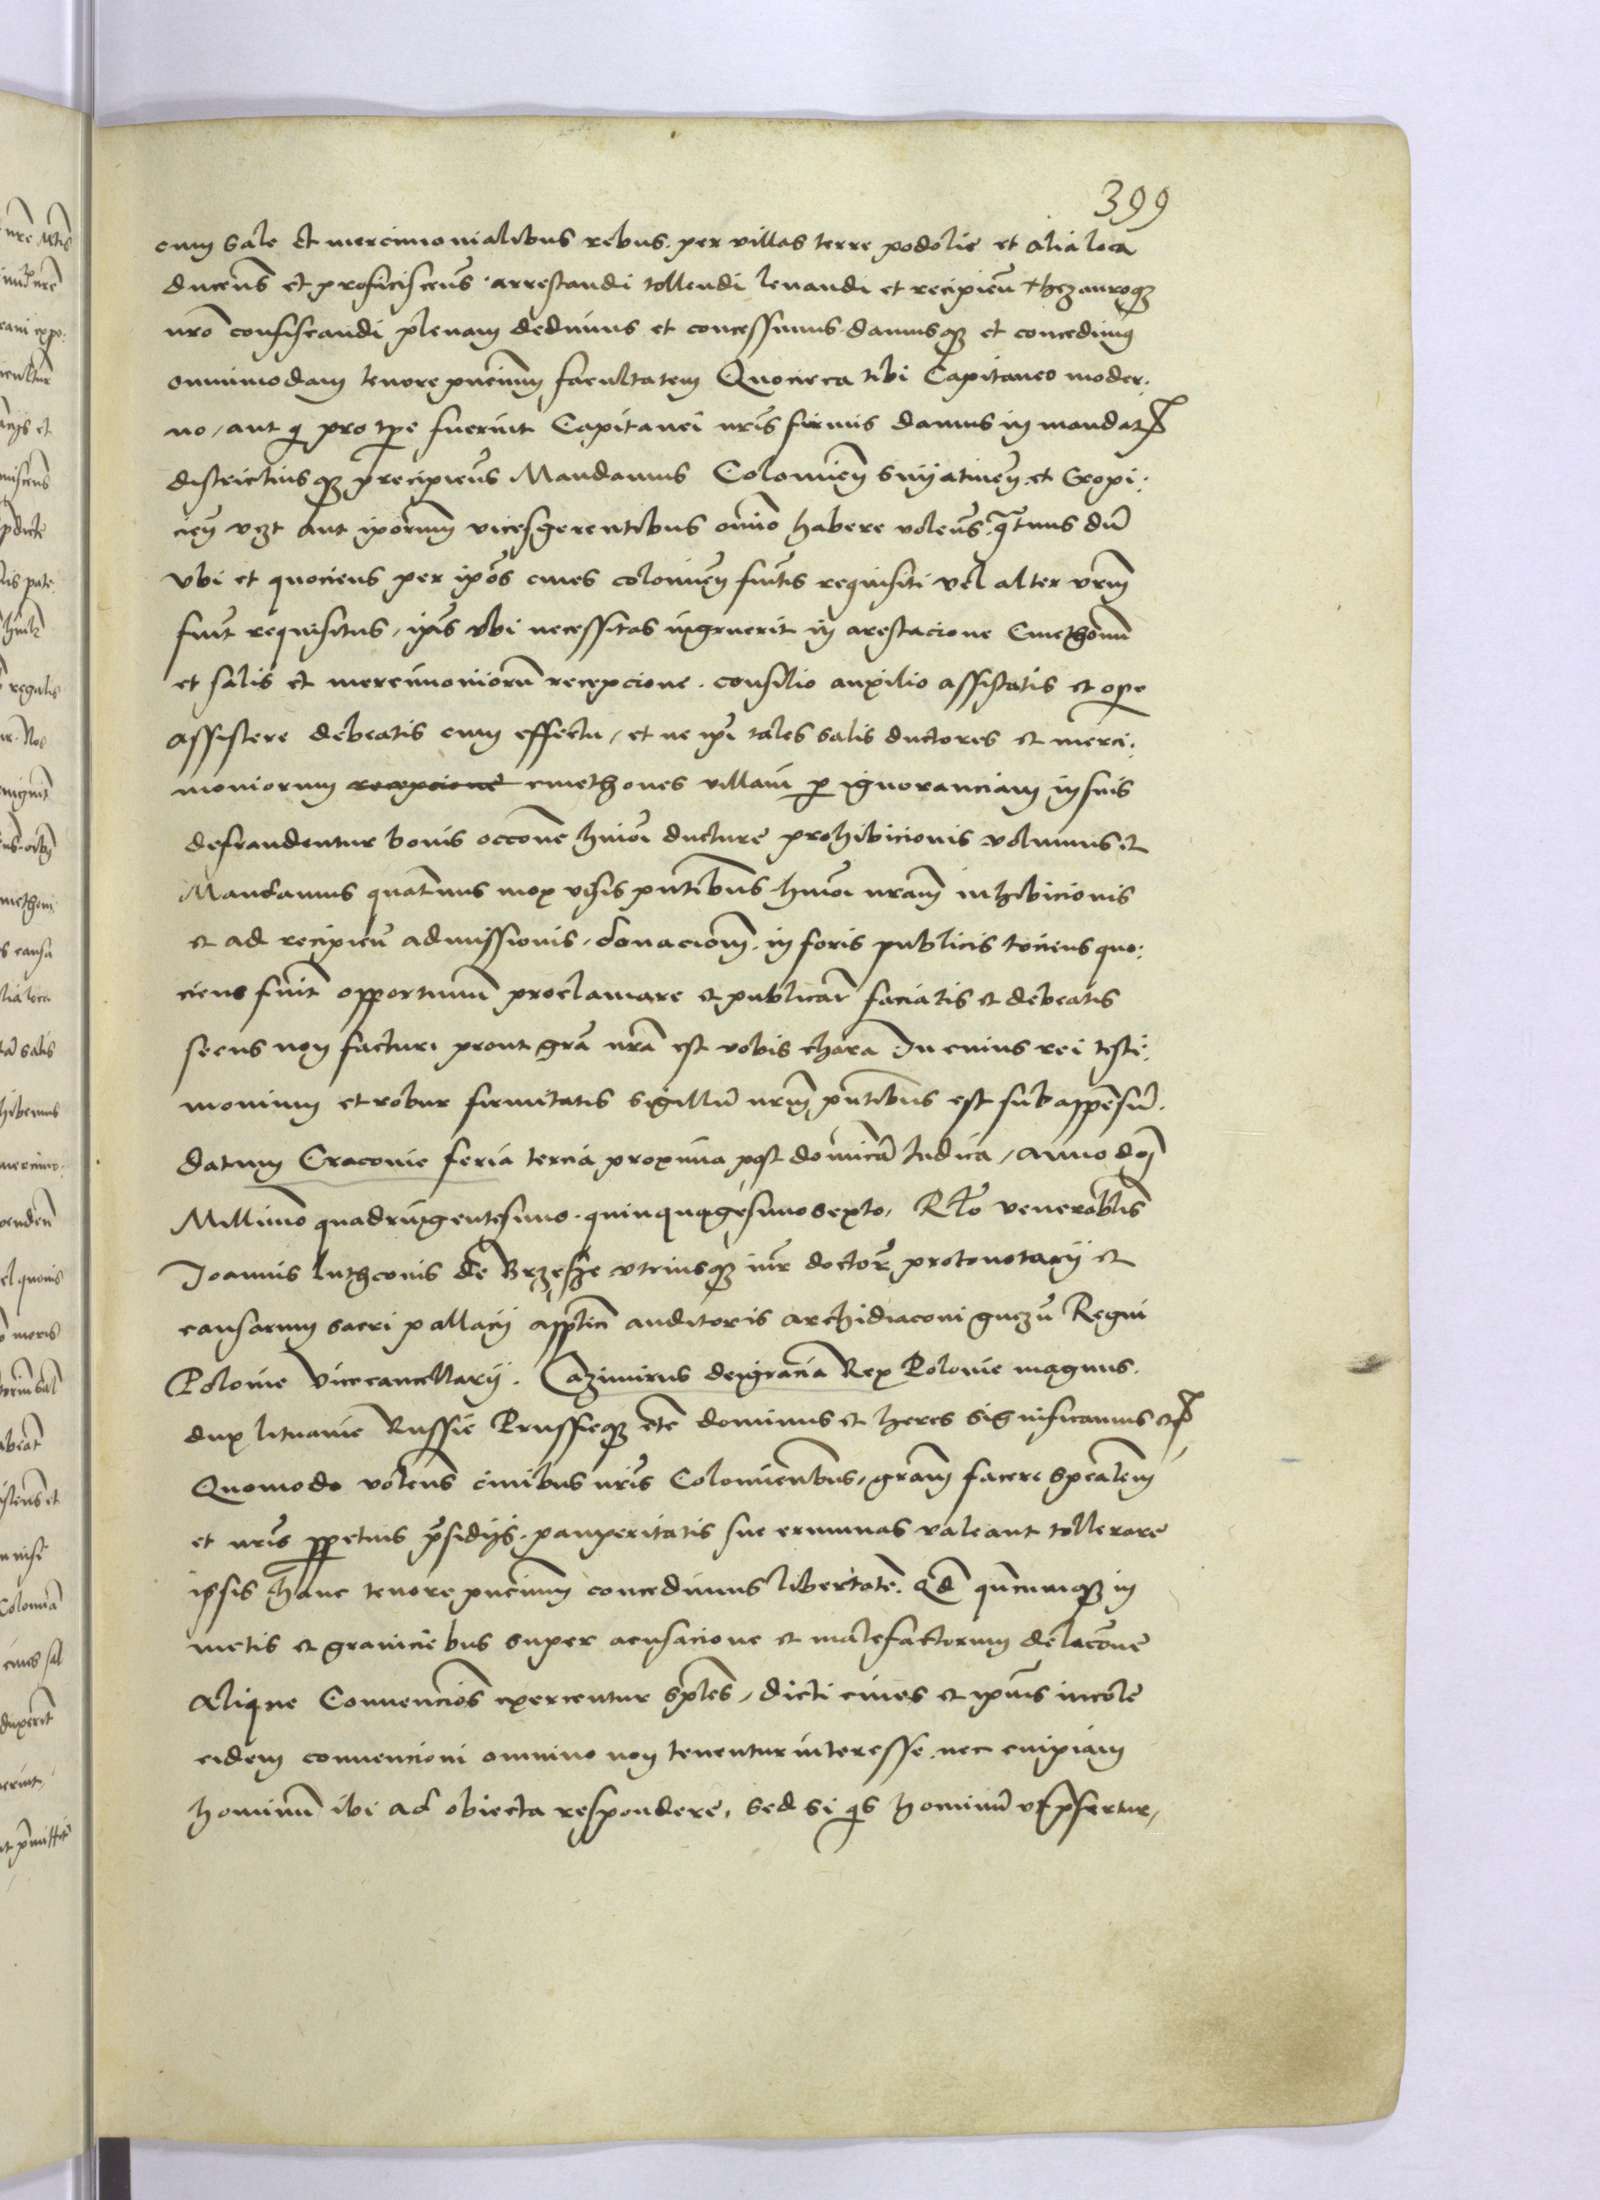 399
cum sale et mercimonialibus rebus per villas terre podolie et alia loca
ducens̄ et proficiscens̄ arrestandi tollendi levandi et recipien̄ thezauroq3
nrō confiscandi plenam dedimus et concessimus damusq3 et concedimus
omnimodam tenore pn̄cium facultatem Quocirca tibi Capitaneo moder:
no, aut q pro tpe fuerint Capitanei nr̄is firmis damus in mandat
districtiusq3 precipiens̄ Mandamus Colomien̄ Snyatinen̄ et
 vzt aut ipōrum vicesgerentibus om̄ino habere volens̄ qt̄inus dū
vbi et quociens per ipōs cives colomien̄ fuitis requisiti vel alter vrm̄
fuit requisitus, ipīs vbi necessitas ingruerit in arestacione Cmethonū
et salis et mercimoniorū recepcione. consilio auxilio assistatis et ope
assistere debeatis cum effectu, et ne ipī tales salis ductores et merci:
moniorum recepcione cmethones villani p ignoranciam in suis
defraudentur bonis occōne hmoī ducture prohibicionis volumus et
Mandamus quatinus mox visis pn̄tibus hmoī nrām inhibicionis
et ad recipien̄ admissionis, donacionē in foris publicis tociens quo:
ciens fuit opportunū proclamare et publicari faciatis et debeatis
secus non facturi prout grā nrā est vobis chara In cuius rei testi:
monium et robur firmitatis sigillū nrm̄ pn̄tibus est subappensū.
datum Cracovie feria tercia proxima post dominicā Iudica, anno dnī
Millīmo quadringentesimo quinquagesimo sexto, Rt̄o venerablis
Joannis luthconis de Brzesze vtriusq3 iur̄ doctor̄ protonotarij et
causarum sacri pallacij apptici auditoris archidiaconi gnezn̄ Regni
Polonie Vicecancellarij. Cazimirus dei gracia Rex Polonie magnus
dux lituanie Russie Prussieq3 etc̄ dominus et heres significamus etc
Quomodo volens̄ civibus nr̄is Colomienbus, gram facere spealem
et nr̄is ppetuis pr̄sidijs pauperitatis sue erumnas valeant tollerare
ipsis hanc tenore pn̄cium concedimus libertatē. qd̄ quicumq3 in
metis et graniciebus super acusacione et malefactorum delacōne
alique Convencioēs exercentur sptes, dicti cives et ipīus incole
eidem convencioni omnino non tenentur interesse, nec cuipiam
hominū ibi ad obiecta respondere, sed si qs hominū vt pr̄fertur,